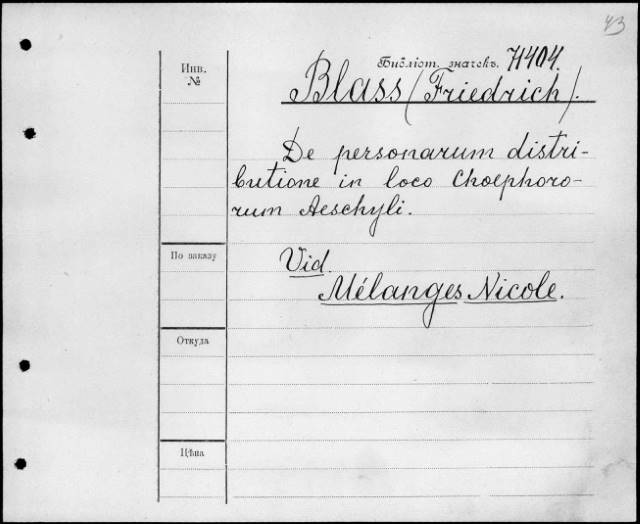 43
Инв.
№
Библіот. значекъ. 71404.
Blass (Friedrich).
De personarum distri-
butione in loco Choephoro-
rum Aeschyli.
По заказу
Vid.
Mélanges Nicole.
Откуда
Цѣна